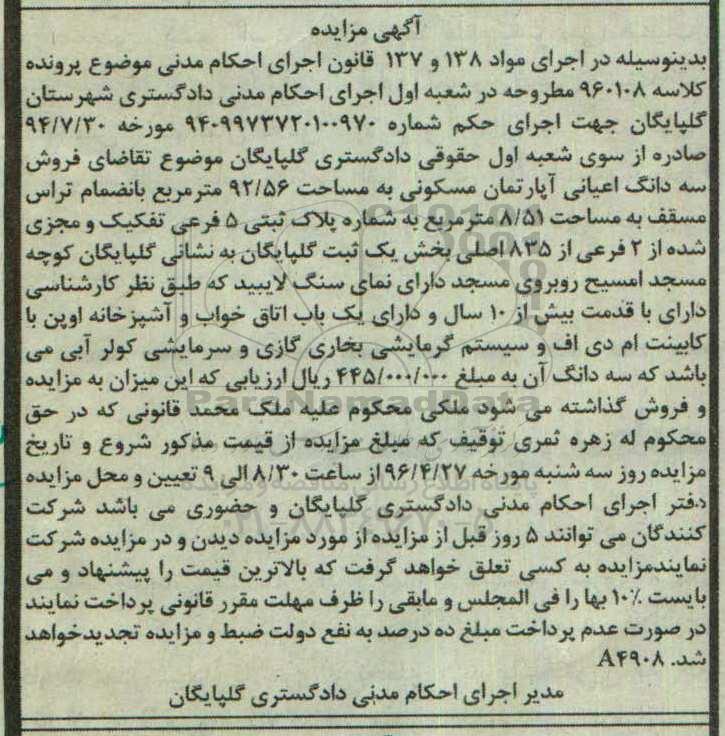 آگهی مزایده
بدینوسیله در اجرای مواد ۱۳۸ و ۱۳۷ قانون اجرای احکام مدنی موضوع پرونده
کلاسه ۹۶۰۱۰۸ مطروحه در شعبه اول اجرای احکام مدنی دادگستری شهرستان
گلپایگان جهت اجرای حکم شماره ۹۴۰۹۹۷۳۷۲۰۱۰۰۹۷۰ مورخه ۹۴/۷/۳۰
صادره از سوی شعبه اول حقوقی دادگستری گلپایگان موضوع تقاضای فروش
سه دانگ اعیانی آپارتمان مسکونی به مساحت ۹۲/۵۶ مترمربع بانضمام تراس
مسقف به مساحت ۸/۵۱ مترمربع به شماره پلاک ثبتی ۵ فرعی تفکیک و مجزی
شده از ۲ فرعی از ۸۳۵ اصلی بخش یک ثبت گلپایگان به نشانی گلپایگان کوچه
مسجد امسیح روبروی مسجد دارای نمای سنگ لایبید که طبق نظر کارشناسی
دارای با قدمت بیش از ۱۰ سال و دارای یک باب اتاق خواب و آشپزخانه اوپن با
کابینت ام دی اف و سیستم گرمایشی بخاری گازی و سرمایشی کولر آبی می
باشد که سه دانگ آن به مبلغ ۴۴۵/۰۰۰/۰۰۰ ریال ارزیابی که این میزان به مزایده
و فروش گذاشته می شود ملکی محکوم علیه ملک محمد قانونی که در حق
محکوم له زهره ثمری توقیف که مبلغ مزایده از قیمت مذکور شروع و تاریخ
مزایده روز سه شنبه مورخه ۹۶/۴/۲۷ از ساعت ۸/۳۰ الی ۹ تعیین و محل مزایده
دفتر اجرای احکام مدنی دادگستری گلپایگان و حضوری می باشد شرکت
کنندگان می توانند ۵ روز قبل از مزایده از مورد مزایده دیدن و در مزایده شرکت
نمایندمزایده به کسی تعلق خواهد گرفت که بالاترین قیمت را پیشنهاد و می
بایست ۱۰٪ بها را فی المجلس و مابقی را ظرف مهلت مقرر قانونی پرداخت نمایند
در صورت عدم پرداخت مبلغ ده درصد به نفع دولت ضبط و مزایده تجدیدخواهد
شد. A۴۹۰۸
مدیر اجرای احکام مدنی دادگستری گلپایگان
ParsNamadData